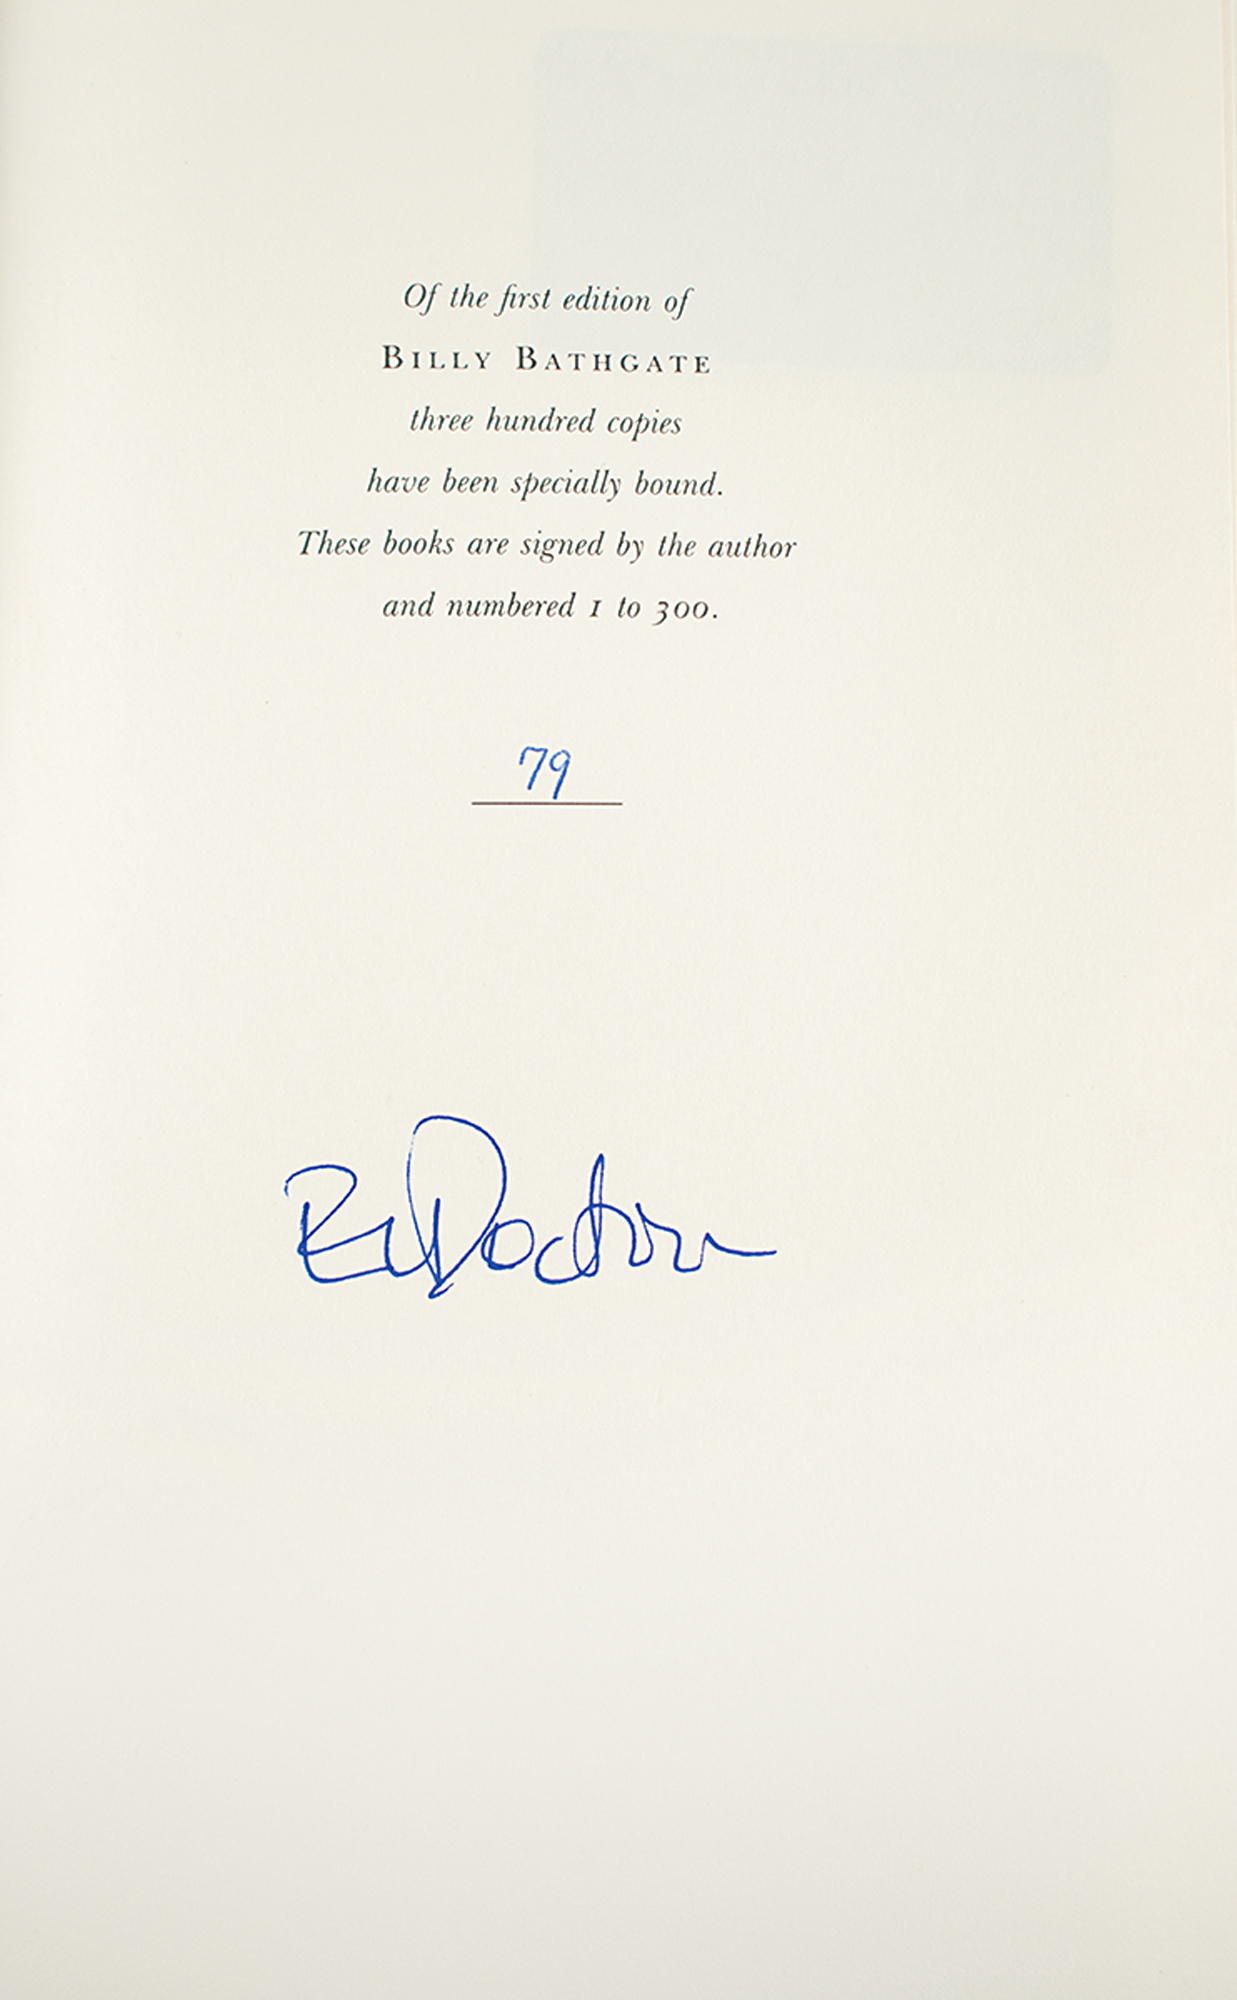 Of the first edition of
BILLY BATHGATE
three hundred copies
have been specially bound.
These books are signed by the author
and numbered 1 to 300.
79